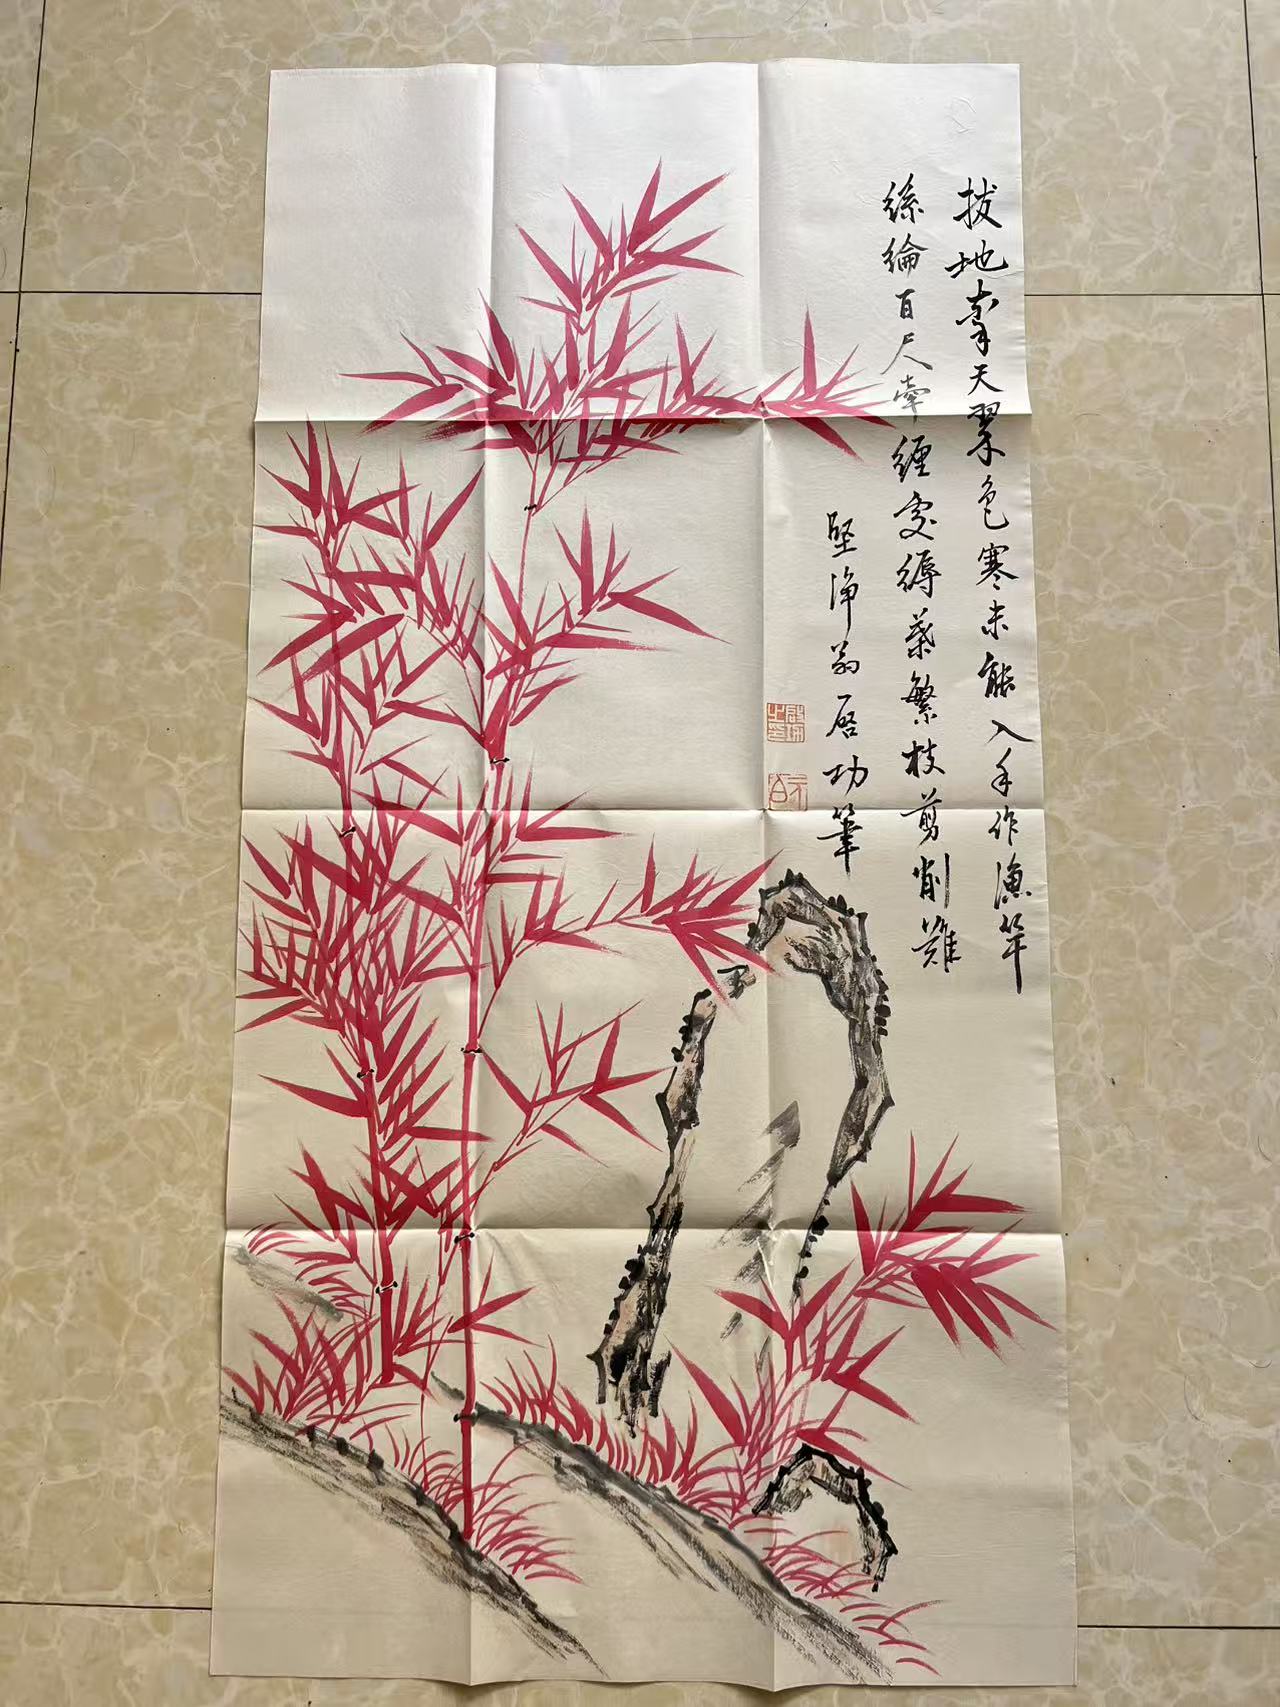 拔地擎天翠色寒未能入手作漁竿
絲綸百尺牽纏處縟葉繁枝剪削難
堅淨翁啓功筆
啟功之印
元白